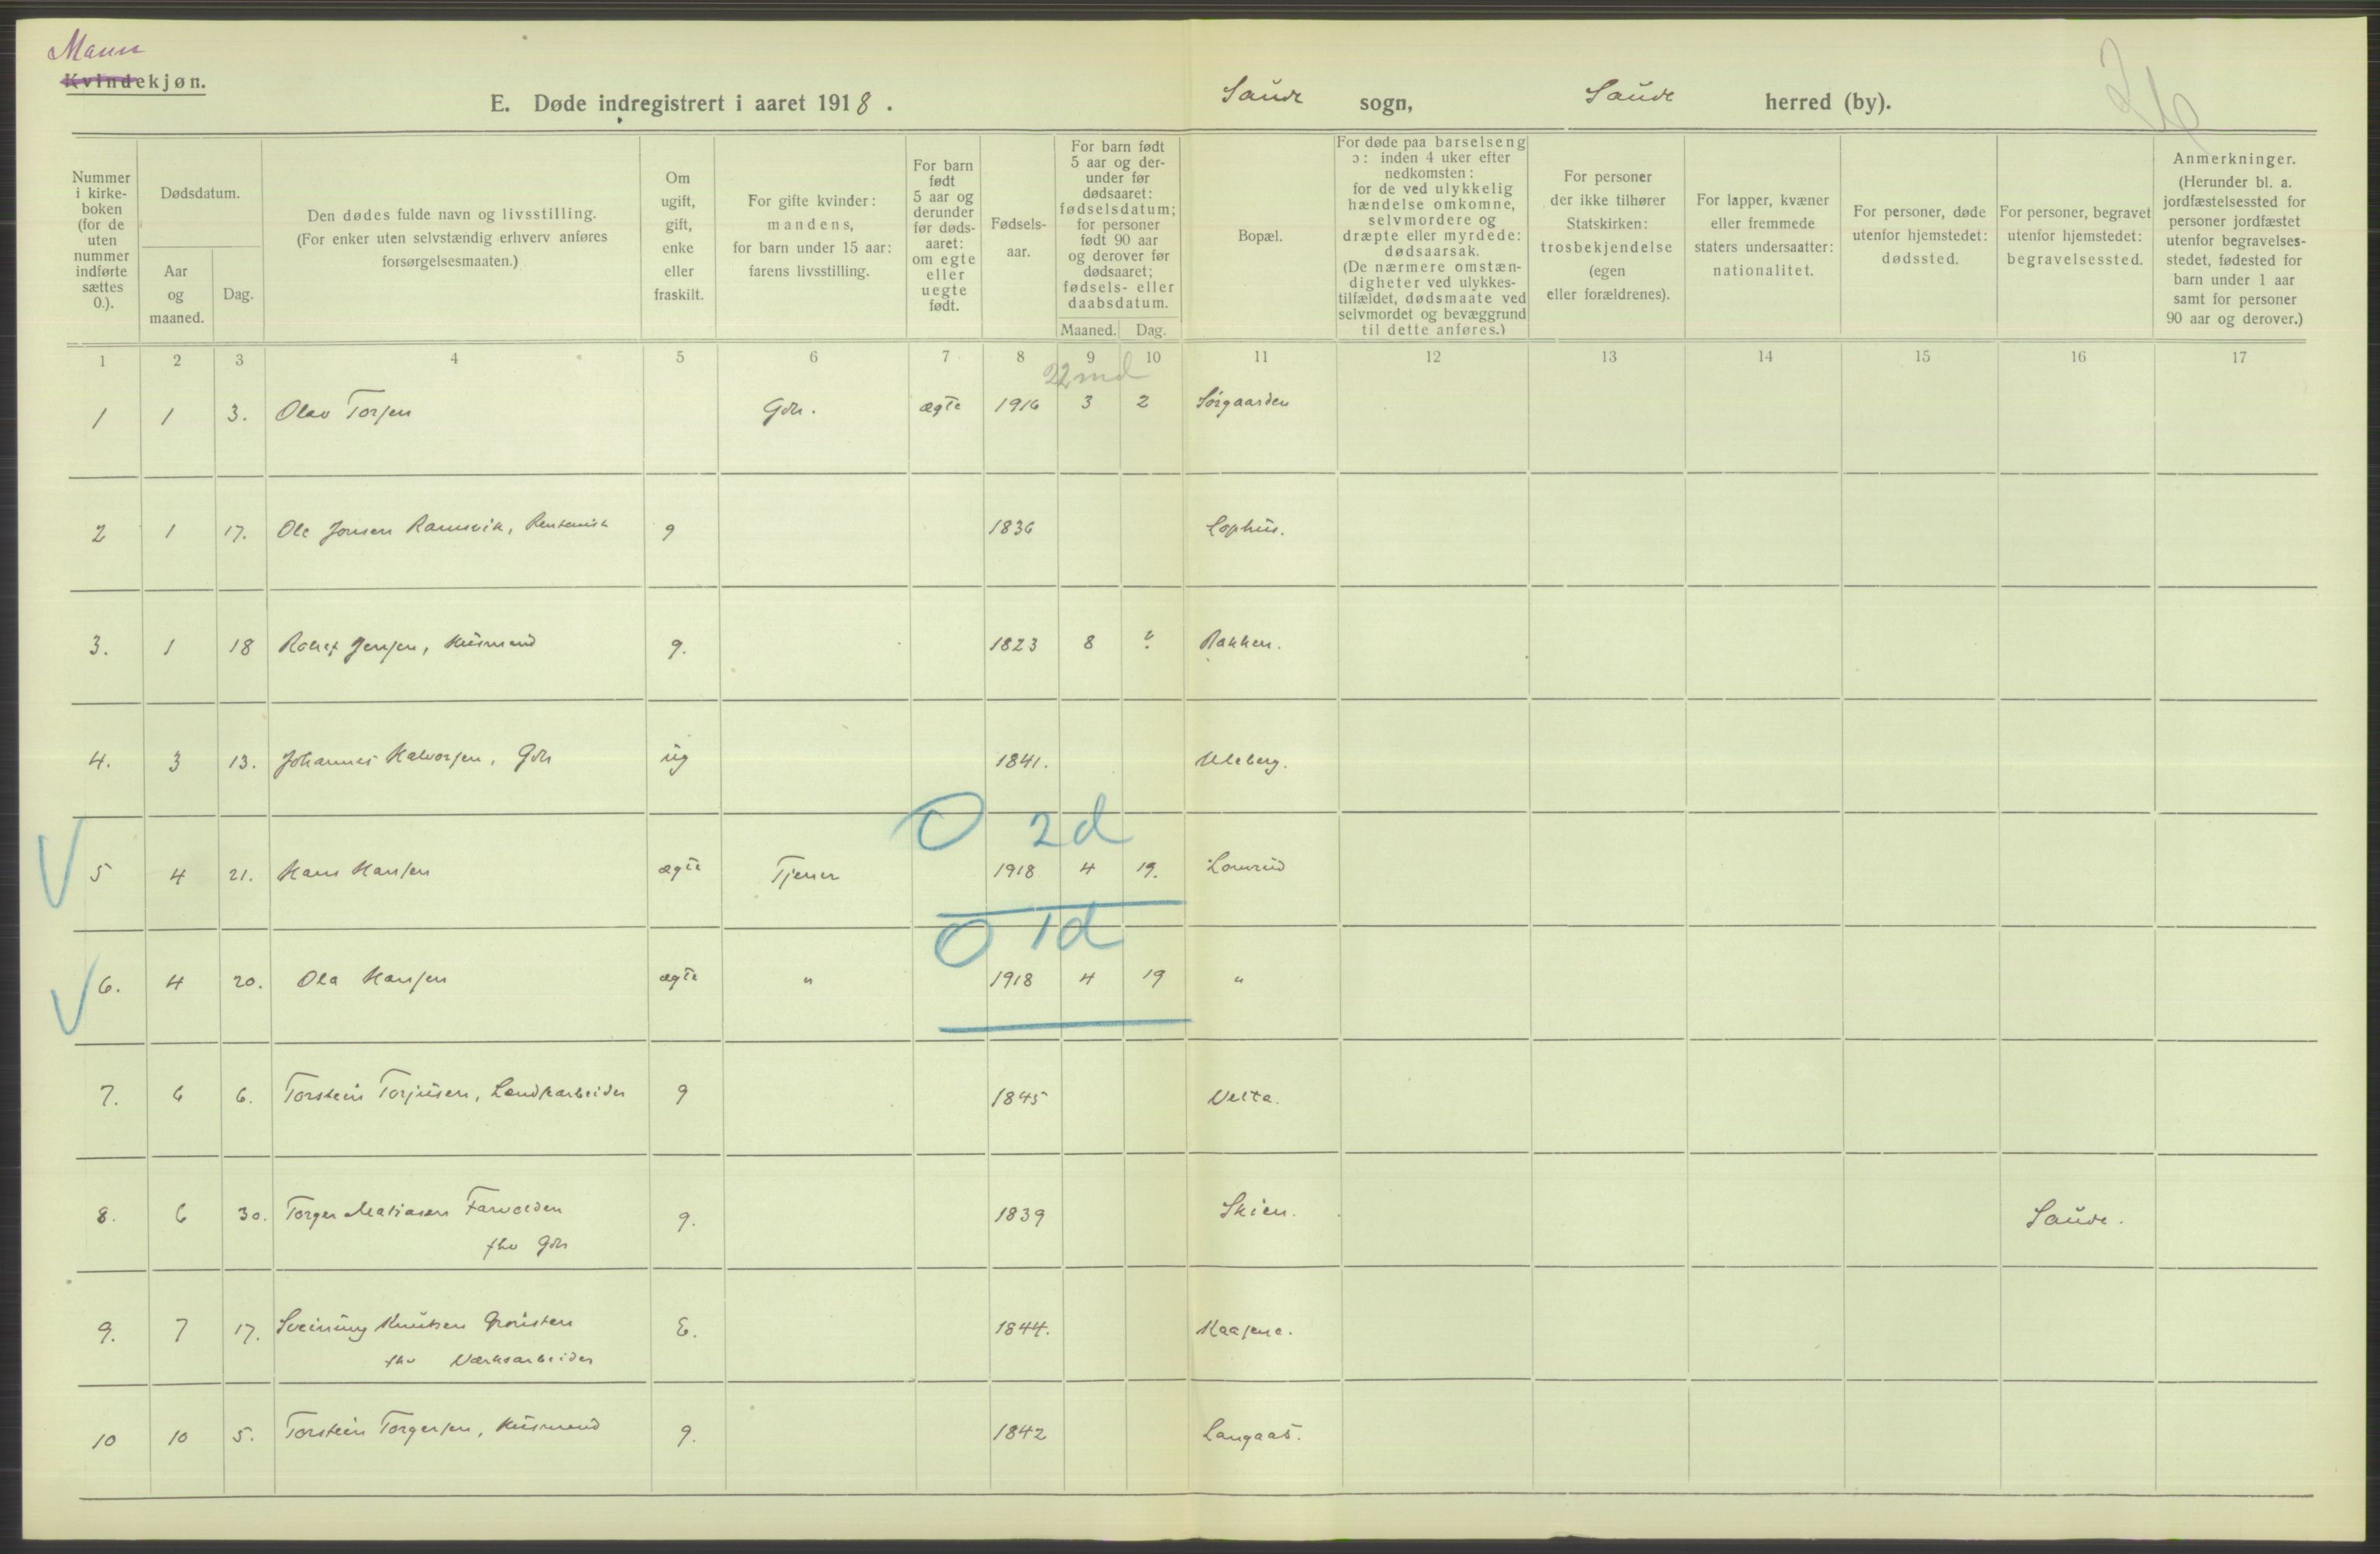 Mann
Kvindekjøn.
E. Døde indregistrert i aaret 1918.
Saude sogn, Saude herred (by).
26
Nummer i kirke- boken (for de uten nummer indførte sættes 0.).
Dødsdatum.
Aar og maaned.
Dag.
Den dødes fulde navn og livsstilling.
(For enker uten selvstændig erhverv anføres forsørgelsesmaaten.)
Om ugift, gift, enke eller fraskilt.
For gifte kvinder: mandens, for barn under 15 aar: farens livsstilling.
For barn født 5 aar og derunder før døds- aaret: om egte eller uegte født.
Fødsels- aar.
For barn født 5 aar og der- under før dødsaaret: fødselsdatum; for personer født 90 aar og derover før dødsaaret; fødsels- eller daabsdatum.
Maaned. Dag.
Bopæl.
For døde paa barselseng ɔ: inden 4 uker efter nedkomsten: for de ved ulykkelig hændelse omkomne, selvmordere og dræpte eller myrdede: dødsaarsak. (De nærmere omstæn- digheter ved ulykkes- tilfældet, dødsmaate ved selvmordet og bevæggrund til dette anføres.)
For personer der ikke tilhører Statskirken: trosbekjendelse (egen eller forældrenes).
For lapper, kvæner eller fremmede staters undersaatter: nationalitet.
For personer, døde utenfor hjemstedet: dødssted.
For personer, begravet utenfor hjemstedet: begravelsessted.
Anmerkninger. (Herunder bl. a. jordfæstelsessted for personer jordfæstet utenfor begravelses- stedet, fødested for barn under 1 aar samt for personer 90 aar og derover.)
1 2 3 4 5 6 7 8 9 10 11 12 13 14 15 16 17
22 md
1 1 3. Olav Torsen Gbr. ægte 1916 3 2 Sørgaarden
2 1 17. Ole Jonsen g 1836 Lophus.
3. 1 18 Jensen, Husmand g. 1823 8 ? Bakken.
4. 3 13. Johannes Halvorsen, Gbr ug 1841. Uleberg.
O 2d
5 4 21. Hans Hansen ægte Tjener 1918 4 19.
O 1d
6. 4 20. Ola Hansen ægte " 1918 4 19 "
7. 6 6. Torstein Torjusen, Landharbeider g 1845
8. 6 30. Torger Matiasen Farvolden g. 1839 Skien. Saude.
fhv Gbr
9. 7 17. Sveinung Knutsen E. 1844. Haasene.
fhv Værksarbeider
10 10 5. Torstein Torgersen, Husmand g. 1842 Langaas.